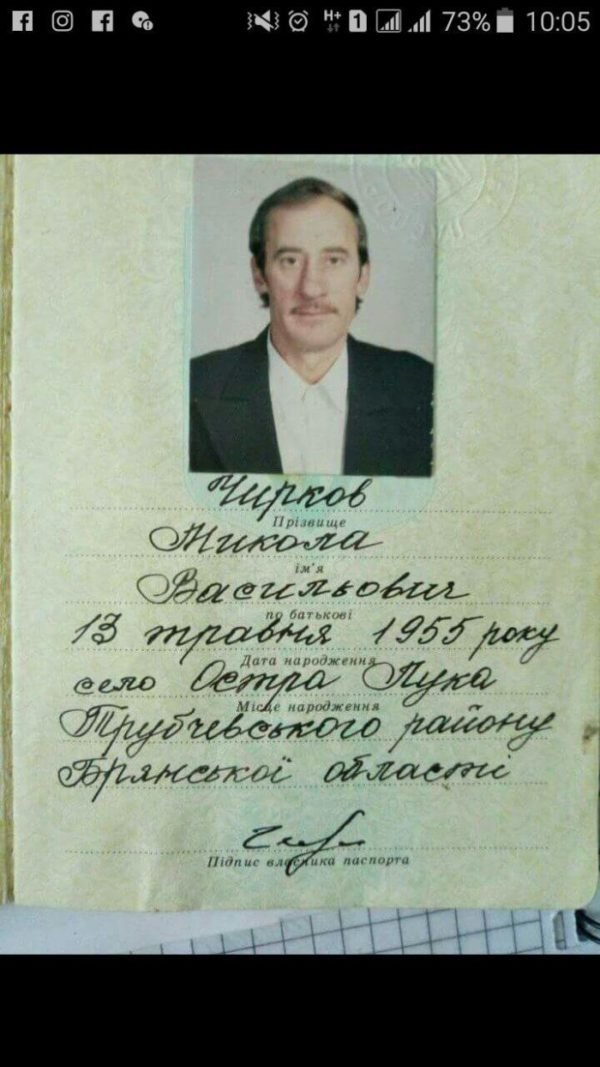 H+ 1 73% 10:05
Чирков
Прізвище
Микола
ім'я
Васильович
по батькові
13 травня 1955 року
Дата народження
село Остра Лука
Місце народження
Трубчевського району
Брянської області
Підпис власника паспорта